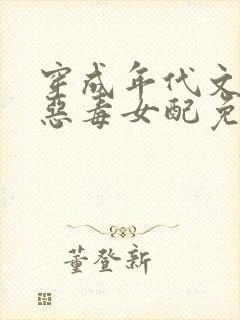 穿成年代文
恶毒女配免
董登新